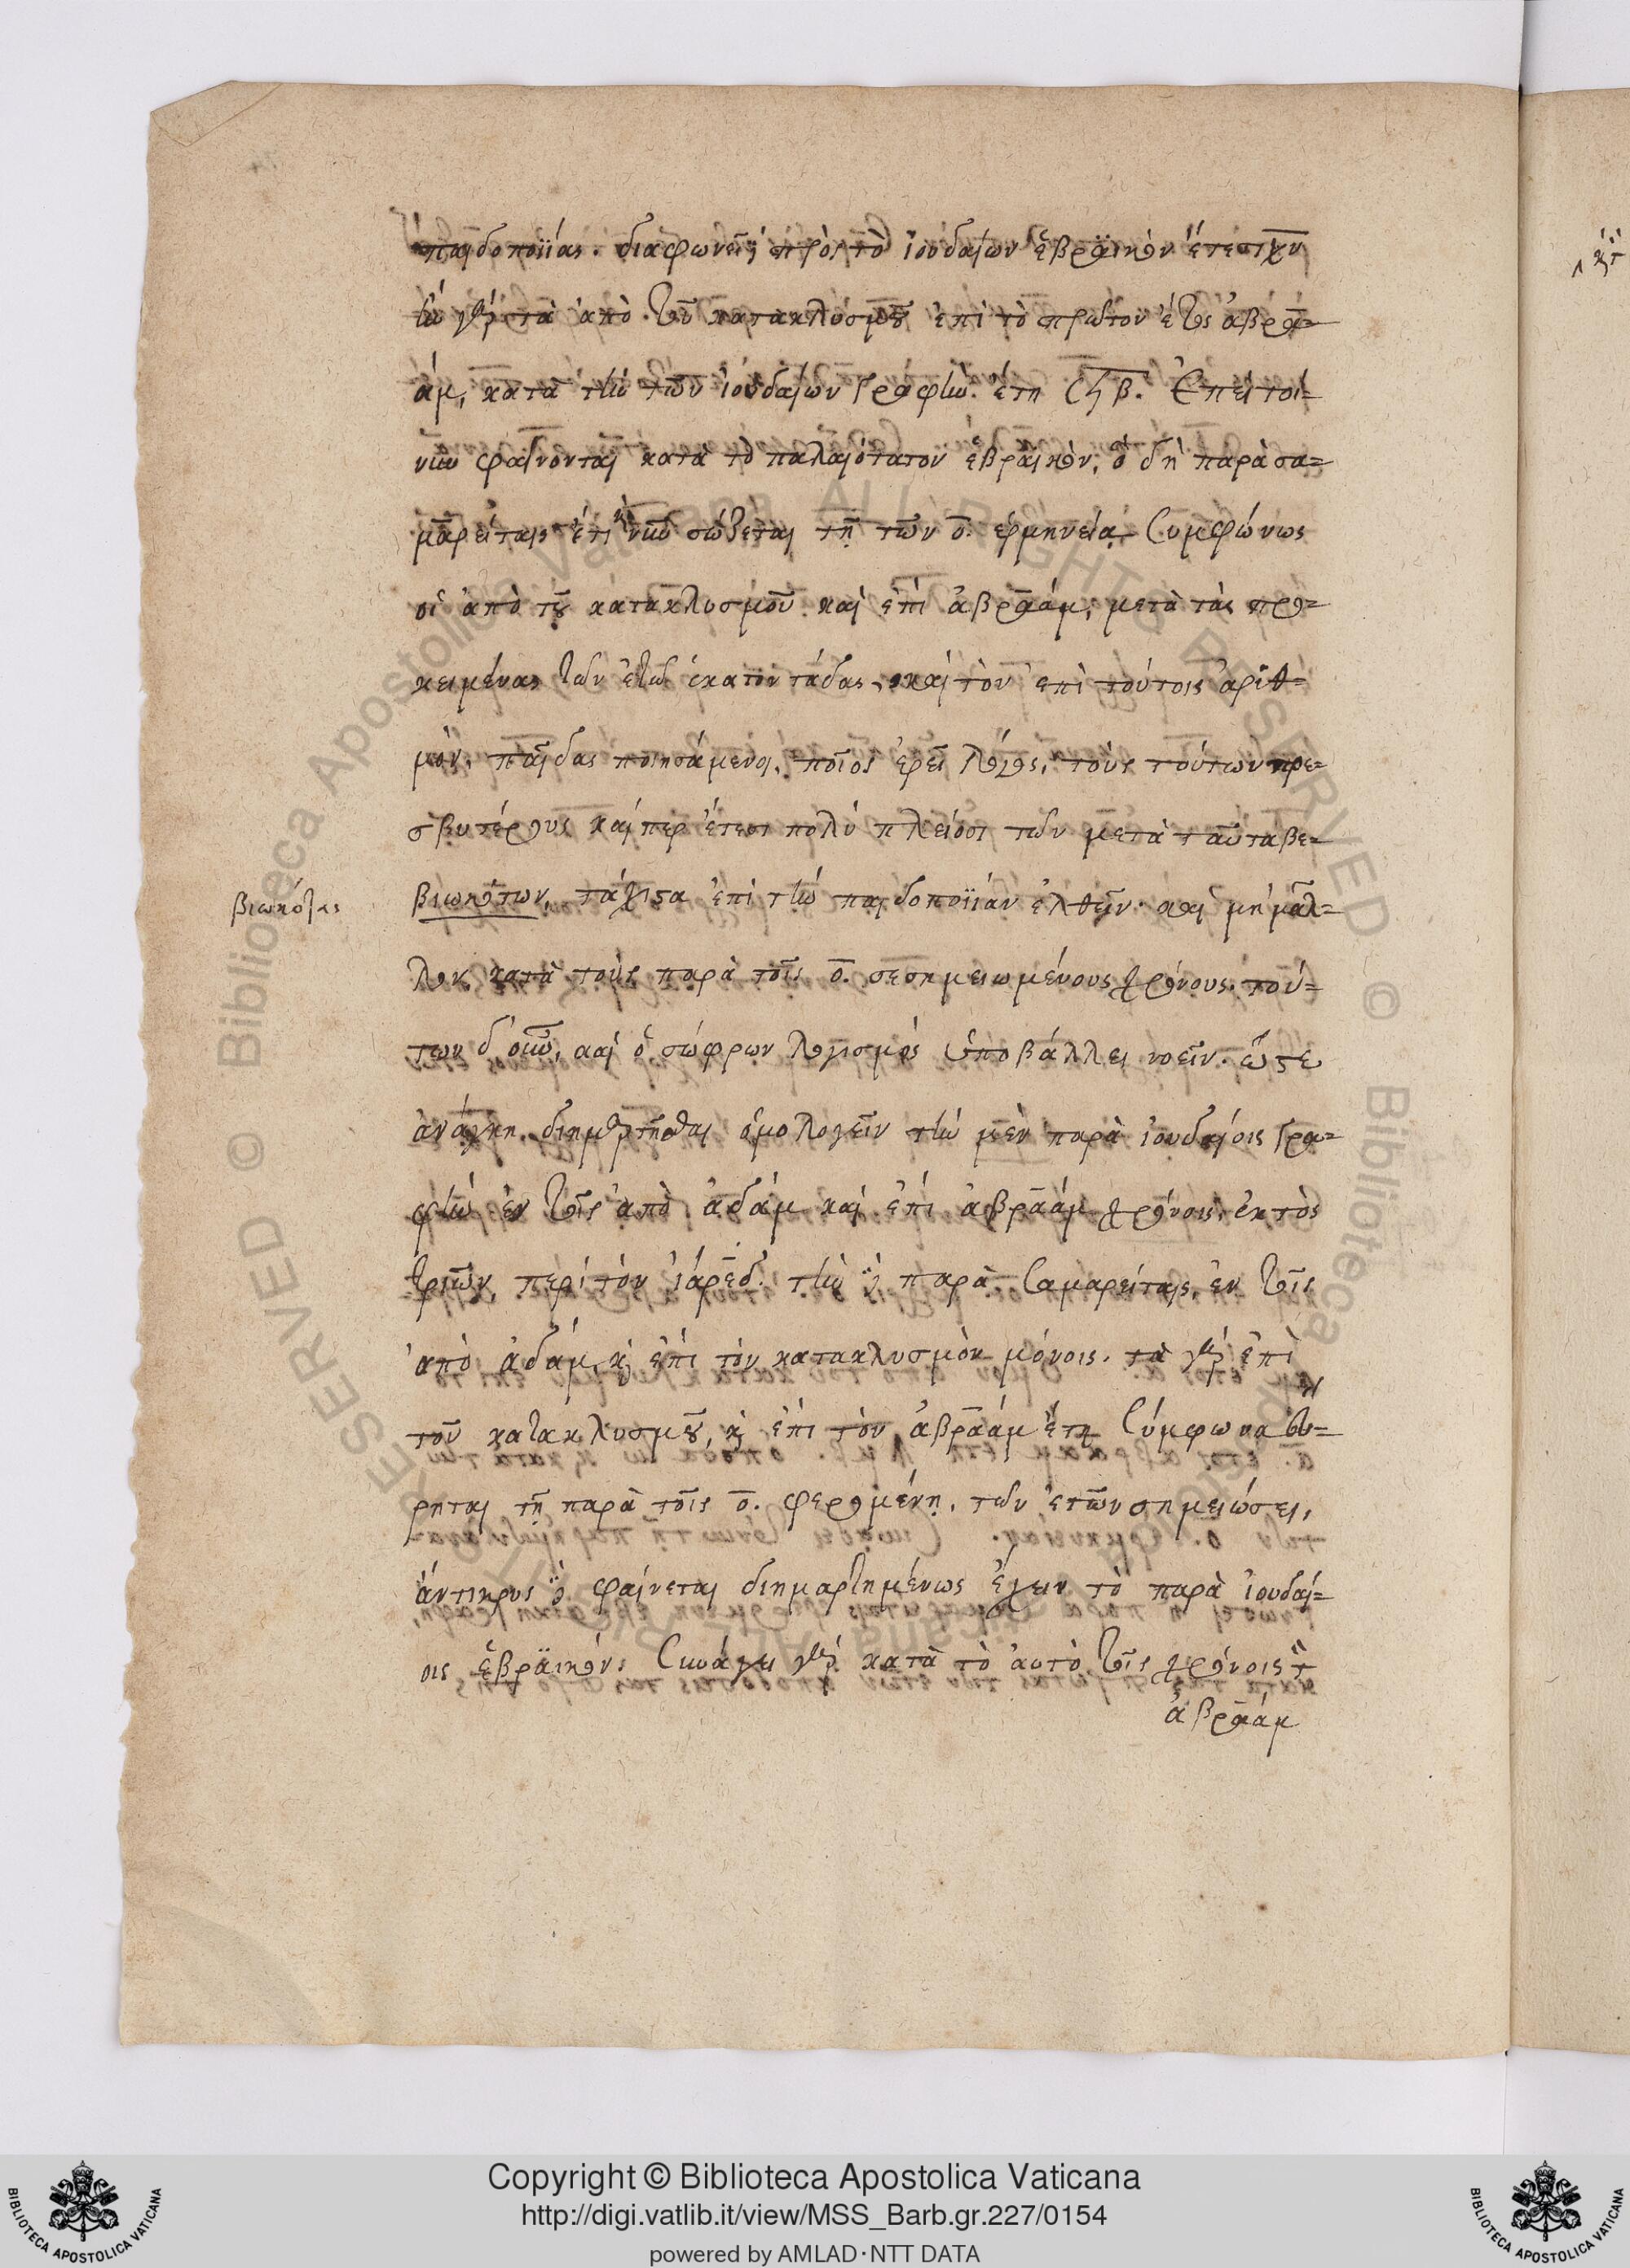 παιδοποιΐας. διαφωνεῖ δὲ πρὸς τὸ ἰουδαίων ἑβραϊκὸν ἔτεσι χν
ἦν γὰρ τὰ ἀπὸ τοῦ κατακλυσμοῦ ἐπὶ τὸ πρῶτον ἔτος ἀβρα=
άμ, κατὰ τὴν τῶν ἰουδαίων γραφὴν. ἔτη ςϟβ. Ἐπεὶ τοί=
νυν φαίνονται κατὰ τὸ παλαιότατον ἑβραϊκὸν, ὃ δὴ παρὰ σα=
μαρείταις ἔτι καὶ νῦν σώζεται τῇ τῶν ο. ἑρμηνείᾳ Συμφώνως
οἱ ἀπὸ τοῦ κατακλυσμοῦ. καὶ ἐπὶ ἀβραάμ, μετὰ τὰς προ=
κειμένας τῶν ἐτῶν ἑκατοντάδας, καὶ τὸν ἐπὶ τούτοις ἀριθ=
μὸν, παῖδας ποιησάμενοι, ποῖος ἐρεῖ λόγος, τοὺς τούτων πρε=
σβυτέρους καίπερ ἔτεσι πολὺ πλείοσι τῶν μετὰ ταῦτα βε=
βιωκότων, τάχιστα ἐπὶ τὴν παιδοποιΐαν ἐλθεῖν. καὶ μὴ μᾶλ=
λον κατὰ τοὺς παρὰ τοῖς ο. σεσημειωμένους χρόνους. τού=
των δ' οὖν, καὶ ὁ σώφρων λογισμὸς ὑποβάλλει νοεῖν. ὥστε
ἀνάγκη, διημαρτῆσθαι ὁμολογεῖν τὴν μὲν παρὰ ἰουδαίοις γρα=
φὴν ἐν τοῖς ἀπὸ ἀδάμ καὶ ἐπὶ ἀβραάμ χρόνοις, ἐκτὸς
τριῶν περὶ τὸν ἰάρεδ. τὴν δὲ παρὰ Σαμαρείταις, ἐν τοῖς
ἀπὸ ἀδάμ, καὶ ἐπὶ τὸν κατακλυσμὸν μόνοις. τὰ γὰρ ἐπὶ
τοῦ κατακλυσμοῦ, καὶ ἐπὶ τὸν ἀβραάμ ἔτη Σύμφωνα εὕ=
ρηται τῇ παρὰ τοῖς ο. φερομένῃ, τῶν ἐτῶν σημειώσει,
ἄντικρυς δὲ φαίνεται διημαρτημένως ἔχειν τὸ παρὰ ἰουδαί=
οις ἑβραϊκόν. Συνάγει γὰρ κατὰ τὸ αὐτὸ τοῖς χρόνοις τ
ἀβραάμ
βιωκότας